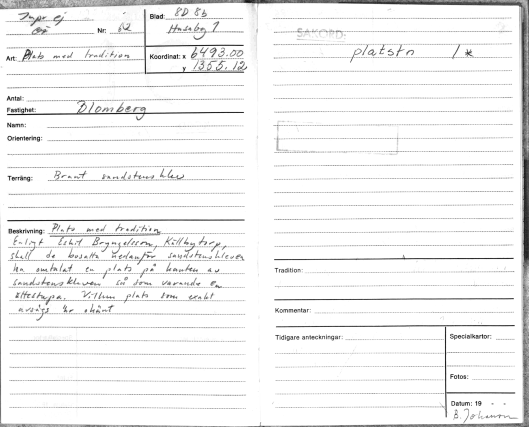 Impr ej
Nr: 62
Blad: 8D 8b
Husaby 7
Art: Plats med tradition
Koordinat: x 6493.00
y 1355.12
Antal:
Fastighet: Blomberg
Namn:
Orientering:
Terräng: Brant sandstensklev
Beskrivning: Plats med tradition
Enligt Eskil Bryngelsson, Källbytorp,
skall de bosatta nedanför sandstenskleven
ha omtalat en plats på kanten av
sandstenskleven så som varande en
ättestupa. Vilken plats som exakt
avsågs är okänt
SAKORD:
platstn 1 *
Tradition:
Kommentar:
Tidigare anteckningar:
Specialkartor:
Fotos:
Datum: 19 - -
B. Johanson